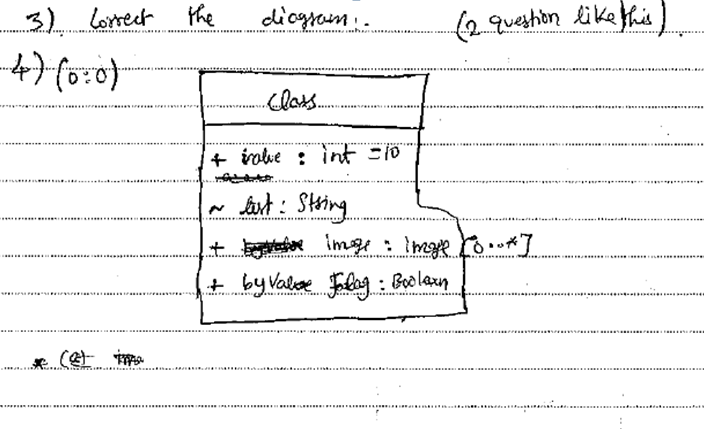 3). Correct the diagram:. (2 question like this).
4) (0:0)
Class
+ value : int =10
~ list : String
+ image : image [0..*]
+ byValue Flag : Boolean
* (